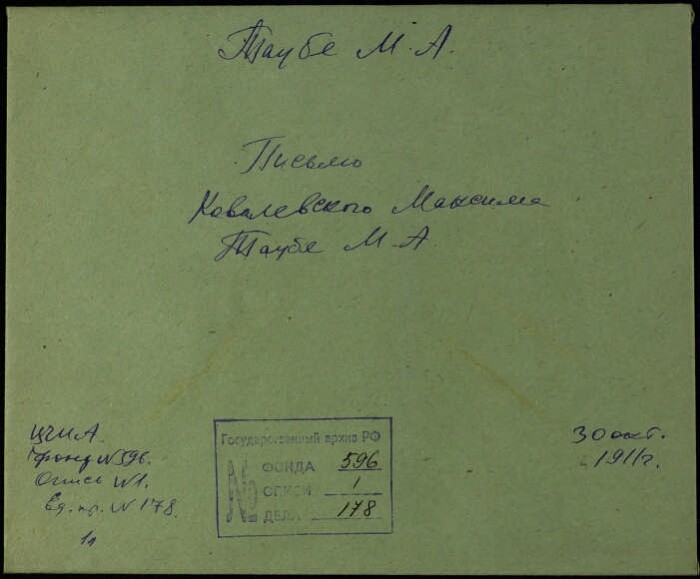 Таубе М. А.
Письмо
Ковалевского Максима
Таубе М. А.
ЦГИА.
Фонд N 596.
Опись N 1.
Ед. хр. N 178.
1л
Государственный архив РФ
№ ФОНДА 596
ОПИСИ 1
ДЕЛА 178
30 окт.
1911г.